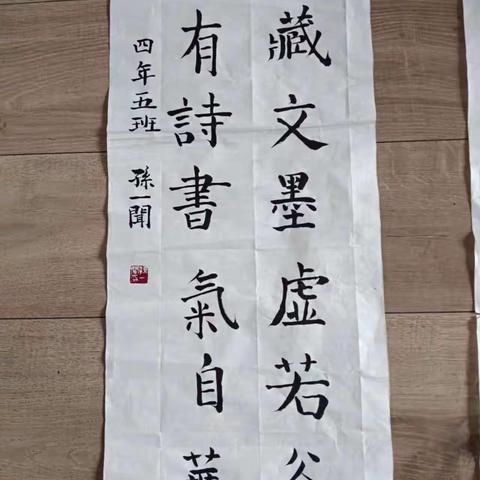 藏文墨虚若
有詩書氣自
四年五班 孫一聞